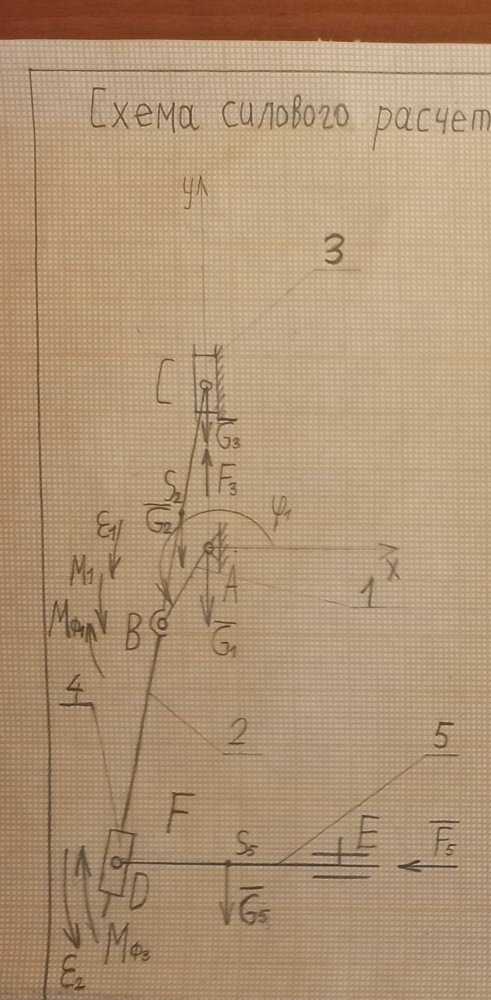 Схема силового расчет
y
3
C
G3
F3
S2
G2
φ1
ε1
x
M1
A
1
Mφ1
B
G1
4
2
5
F
S5
E
F5
D
G5
Mφ3
ε2